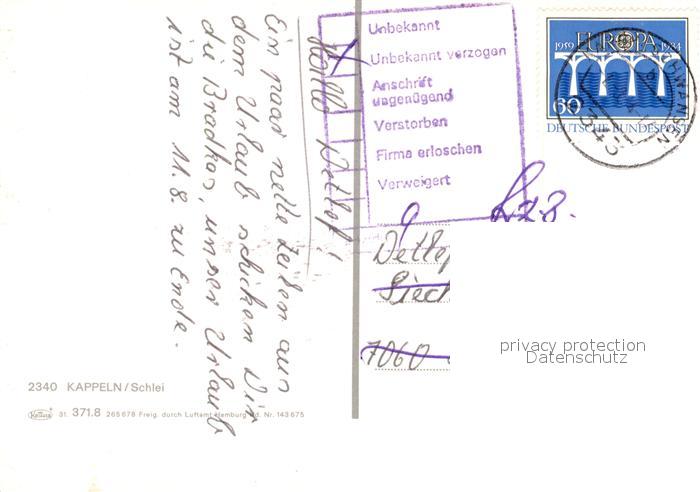 Hallo Detlef!
Ein paar nette Zeilen aus
dem Urlaub schicken Dir
die Bradkos, unser Urlaub
ist am 11.8. zu Ende.
2340 KAPPELN/Schlei
Unbekannt
Unbekannt verzogen
Anschrift
ungenügend
Verstorben
Firma erloschen
Verweigert
EUROPA
1959 1984
60
DEUTSCHE BUNDESPOST
Detlef
7060
privacy protection
Datenschutz
31. 371.8 265678 Freig. durch Luftamt Hamburg Nr. 143675